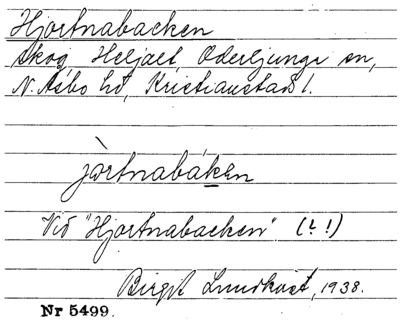 Hjortnabacken
Skog Heljalt, Oderljunga sn,
N. Åsbo hd, Kristianstads l.
jòrtnabáken
Vid "Hjortnabacken" (? !)
Birgit Lundkvist, 1938.
Nr 5499.